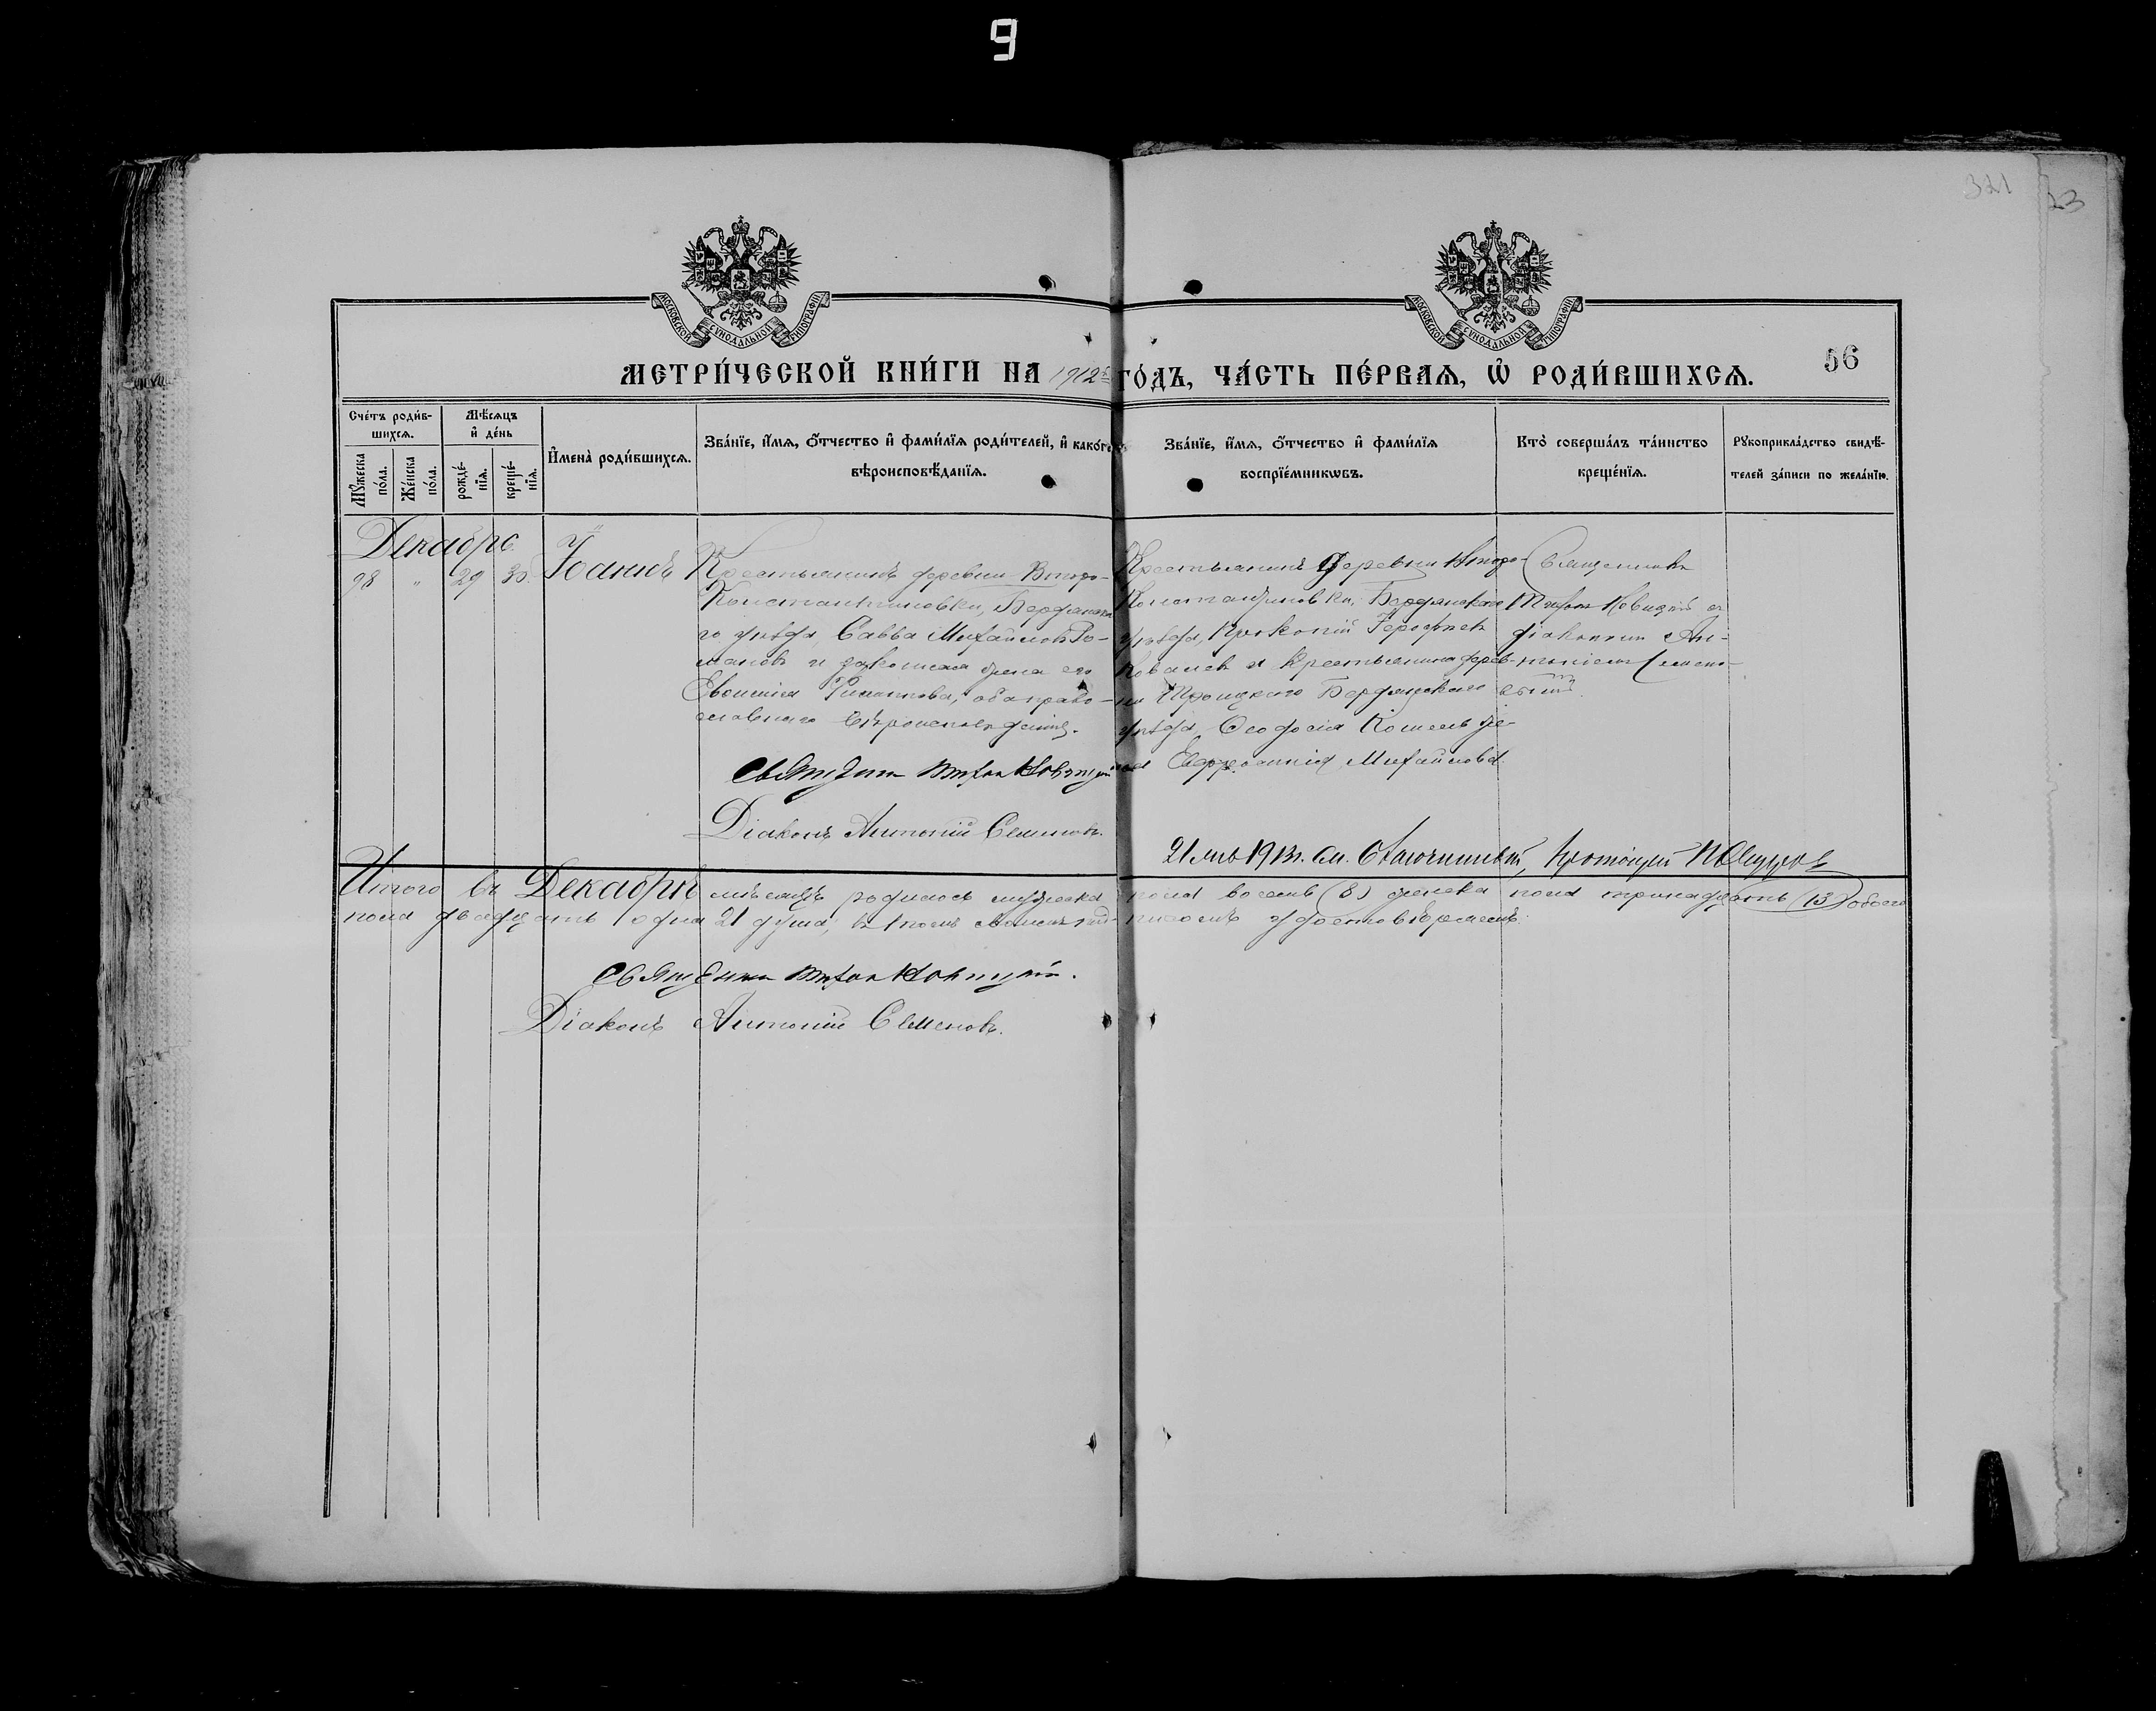 9
321
23
МОСКОВСКОЙ СѴНОДАЛЬНОЙ ТИПОГРАФІИ
МОСКОВСКОЙ СѴНОДАЛЬНОЙ ТИПОГРАФІИ
МЕТРИ́ЧЕСКОЙ КНИ́ГИ НА 1912й ГО́ДЪ, ЧА́СТЬ ПЕ́РВАЯ, Ѡ РОДИ́ВШИХСЯ.
56
Сче́тъ роди́в-
шихся.
Мѣ́сяцъ
и҆ де́нь
Мꙋ́жеска
по́ла.
Же́нска
по́ла.
рожде́-
нїя.
креще́-
нїя.
И҆мена̀ роди́вшихся.
Зва́нїе, и҆́мя, ѻ҆́тчество и҆ фами́лїя роди́телей, и҆ како́гѡ
вѣроисповѣ́данїя.
Зва́нїе, и҆́мя, ѻ҆́тчество и҆ фами́лїя
воспрїе́мникѡвъ.
Кто̀ соверша́лъ та́инство
креще́нїя.
Рꙋкоприкла́дство свидѣ́-
телей за́писи по жела́нїю.
Декабрь.
98 " 29 30.
Іоаннъ
Крестьянинъ деревни Второ-
Константиновки, Бердянска-
го уѣзда, Савва Михайловъ Ро-
мановъ и законная жена его
Евфимія Филиппова, оба право-
славнаго вѣроисповѣданія.
Священникъ Тихонъ Новицкій
Діаконъ Антоній Семеновъ.
Крестьянинъ деревни Второ-
Константиновки, Бердянскаго
уѣзда, Прокопій Ерофѣевъ
Ковалевъ и крестьянина дерев-
ни Троицкаго Бердянскаго
уѣзда, Феодосія же-
на Евфросинія Михайлова.
Священникъ
Тихонъ Новицкій съ
діакономъ Ан-
тоніемъ Семено-
вымъ.
21 1913г. См. Протоіерей
Итого въ Декабрѣ мѣсяцѣ родилось мужеска пола восемь (8) женска пола тринадцать (13) обоего
пола двадцать одна 21 душа, въ томъ подписомъ удостовѣряемъ:
Священникъ Тихонъ Новицкій.
Діаконъ Антоній Семеновъ.